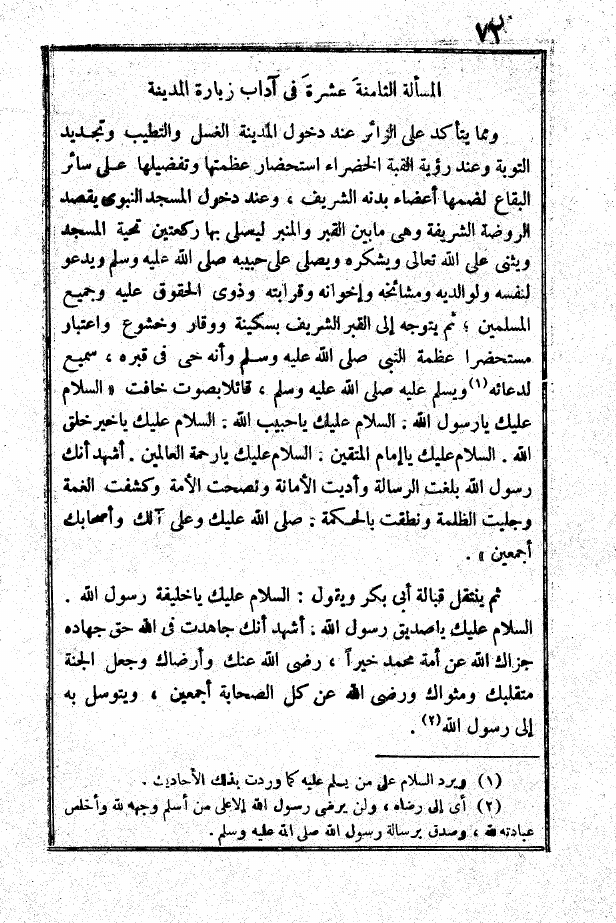 ٧٣
المسألة الثامنة عشرة في آداب زيارة المدينة
ومما يتأكد على الزائر عند دخول المدينة الغسل والتطيب وتجديد
التوبة وعند رؤية القبة الخضراء استحضار عظمتها وتفضيلها على سائر
البقاع لضمها أعضاء بدنه الشريف ، وعند دخول المسجد النبوى يقصد
الروضة الشريفة وهى مابين القبر والمنبر ليصلى بها ركعتين تحية المسجد
ويثنى على الله تعالى ويشكره ويصلى على حبيبه صلى الله عليه وسلم ويدعو
لنفسه ولوالديه ومشائخه وإخوانه وقرابته وذوى الحقوق عليه وجميع
المسلمين ؛ ثم يتوجه إلى القبر الشريف بسكينة ووقار وخشوع واعتبار
مستحضرا عظمة النبي صلى الله عليه وسلم وأنه حى فى قبره ، سميع
لدعائه (١) ويسلم عليه صلى الله عليه وسلم ، قائلا بصوت خافت « السلام
عليك يارسول الله . السلام عليك ياحبيب الله . السلام عليك ياخير خلق
الله . السلام عليك ياإمام المتقين . السلام عليك يارحمة العالمين . أشهد أنك
رسول الله بلغت الرسالة وأديت الأمانة ونصحت الأمة وكشفت الغمة
وجليت الظلمة ونطقت بالحكمة . صلى الله عليك وعلى آلك وأصحابك
أجمعين » .
ثم ينتقل قبالة أبى بكر ويقول : السلام عليك ياخليفة رسول الله .
السلام عليك ياصديق رسول الله . أشهد أنك جاهدت فى الله حق جهاده
جزاك الله عن أمة محمد خيراً ، رضى الله عنك وأرضاك وجعل الجنة
متقلبك ومثواك ورضى الله عن كل الصحابة أجمعين ، ويتوسل به
إلى رسول الله (٢) .
(١) ويرد السلام على من يسلم عليه كما وردت بذلك الأحاديث .
(٢) أى إلى رضاه ، ولن يرضى رسول الله إلا على من أسلم وجهه لله وأخلص
عبادته لله ، وصدق برسالة رسول الله صلى الله عليه وسلم .